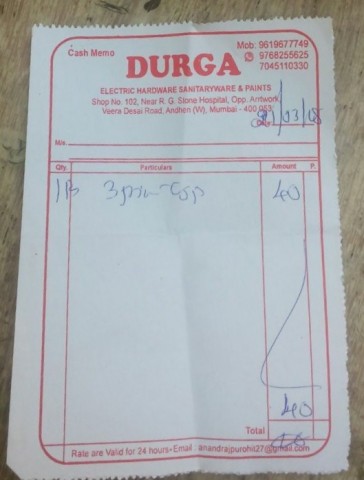 Cash Memo
Mob: 9619677749
9768255625
7045110330
DURGA
ELECTRIC HARDWARE SANITARYWARE & PAINTS
Shop No. 102, Near R. G. Stone Hospital, Opp. Arrtwork,
Veera Desai Road, Andheri (W), Mumbai - 400 053.
/03/08
M/s.
Qty. Particulars Amount P.
3 40
40
Total
Rate are Valid for 24 hours • Email : anandrajpurohit27@gmail.com